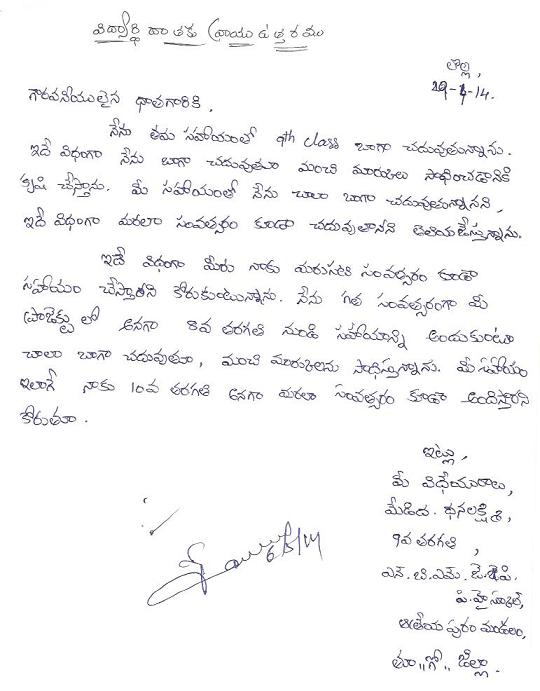 విద్యార్థి దాతకు వ్రాయు ఉత్తరము
తొల్లి,
29-4-14.
గౌరవనీయులైన దాతగారికి.
నేను తమ సహాయంతో 9th class బాగా చదువుతున్నాను.
ఇదే విధంగా నేను బాగా చదువుతూ మంచి మార్కులు సాధించడానికి
కృషి చేస్తాను. మీ సహాయంతో నేను చాలా బాగా చదువుతున్నానని,
ఇదే విధంగా మరలా సంవత్సరం కూడా చదువుతానని తెలియజేస్తున్నాను.
ఇదే విధంగా మీరు నాకు మరుసటి సంవత్సరం కూడా
సహాయం చేస్తారని కోరుకుంటున్నాను. నేను గత సంవత్సరంగా మీ
ప్రాజెక్టు లో అనగా 8వ తరగతి నుండి సహాయాన్ని అందుకుంటూ
చాలా బాగా చదువుతూ, మంచి మార్కులను సాధిస్తున్నాను. మీ సహాయం
ఇలాగే నాకు 10వ తరగతి అనగా మరలా సంవత్సరం కూడా అందిస్తారని
కోరుతూ.
ఇట్లు,
మీ విధేయురాలు,
మేడిద. ధనలక్ష్మి,
9వ తరగతి,
ఎన్.బి.ఎమ్.జె.పి.
హైస్కూల్,
ఆత్రేయపురం మండలం,
తూ,,గో,, జిల్లా.
6/5/14